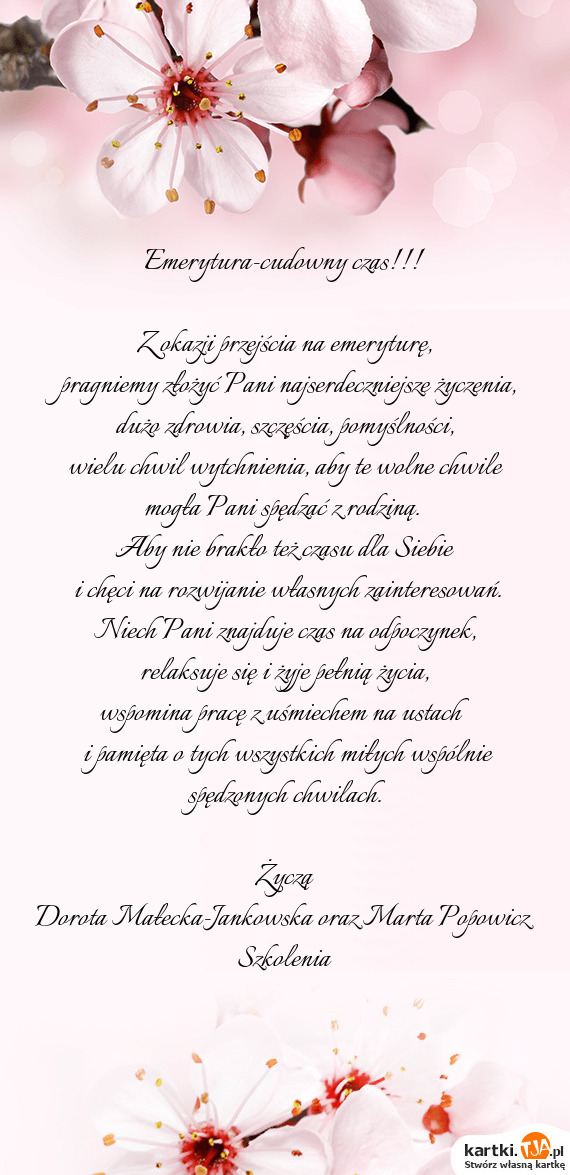 Emerytura-cudowny czas!!!
Z okazji przejścia na emeryturę,
pragniemy złożyć Pani najserdeczniejsze życzenia,
dużo zdrowia, szczęścia, pomyślności,
wielu chwil wytchnienia, aby te wolne chwile
mogła Pani spędzać z rodziną.
Aby nie brakło też czasu dla Siebie
i chęci na rozwijanie własnych zainteresowań.
Niech Pani znajduje czas na odpoczynek,
relaksuje się i żyje pełnią życia,
wspomina pracę z uśmiechem na ustach
i pamięta o tych wszystkich miłych wspólnie
spędzonych chwilach.
Życzą
Dorota Małecka-Jankowska oraz Marta Popowicz
Szkolenia
kartki.TJA.pl
Stwórz własną kartkę